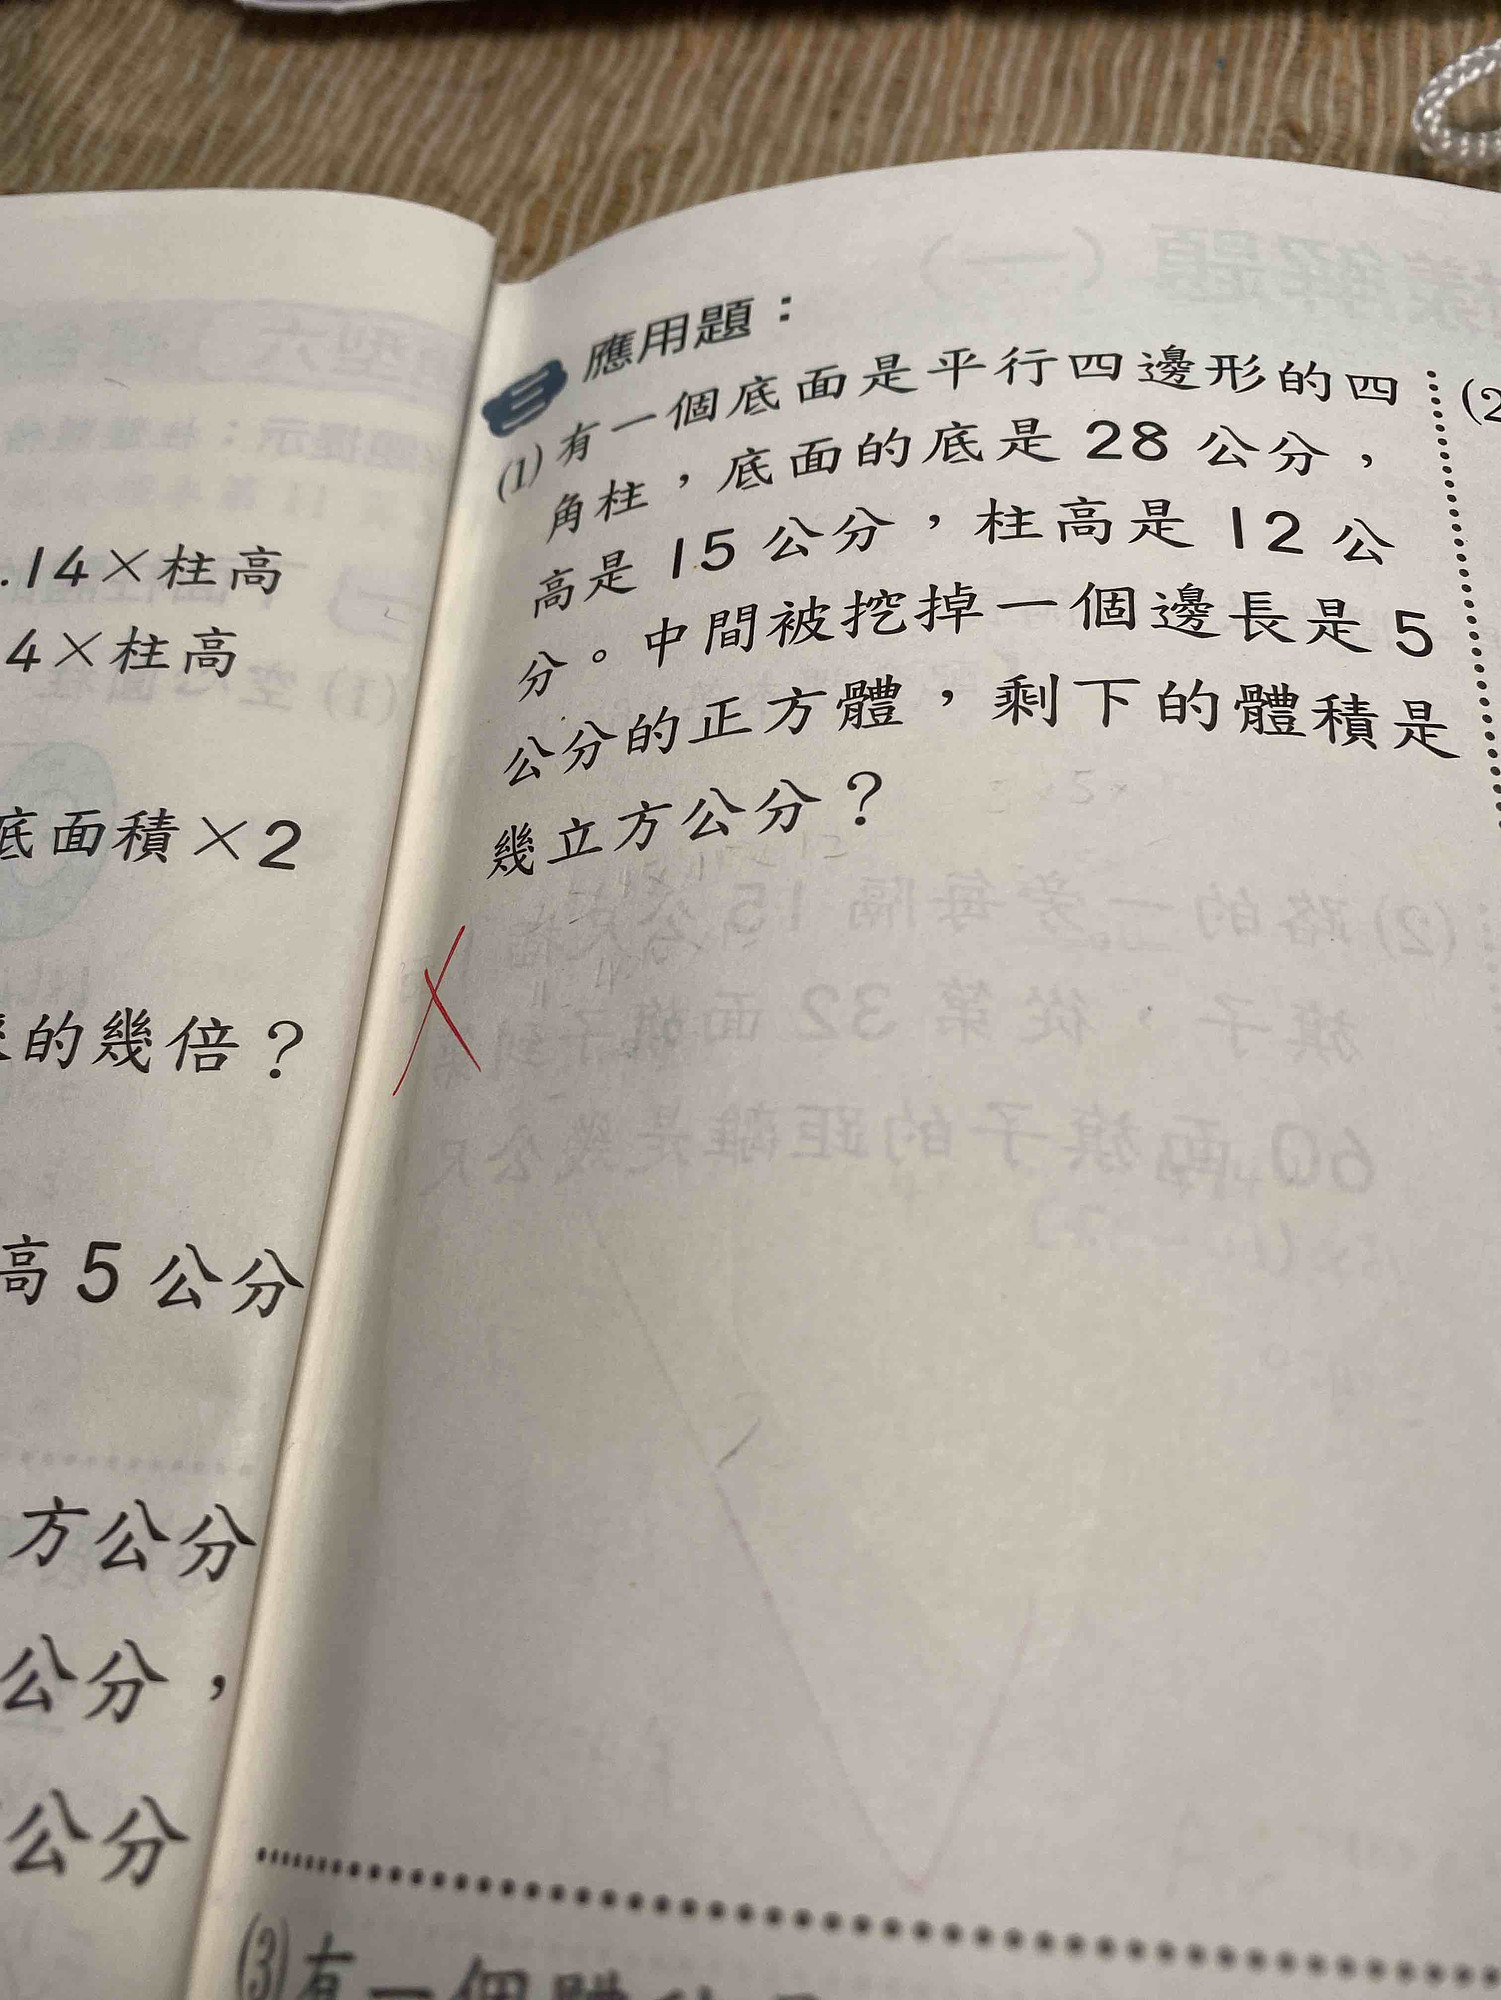 .14×柱高
4×柱高
底面積×2
的幾倍？
高5公分
方公分
公分，
公分
三 應用題：
(1)有一個底面是平行四邊形的四
角柱，底面的底是28公分，
高是15公分，柱高是12公
分。中間被挖掉一個邊長是5
公分的正方體，剩下的體積是
幾立方公分？
(2
(3)有一個